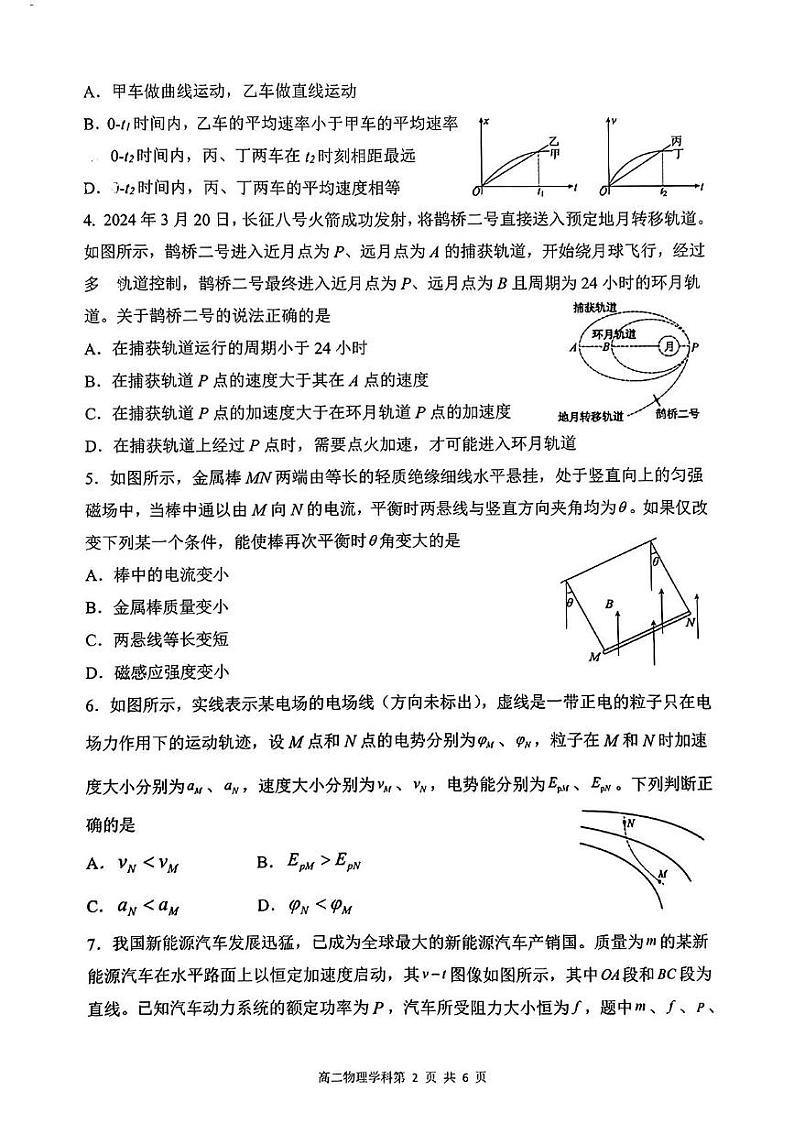 A．甲车做曲线运动，乙车做直线运动
B．0-t₁时间内，乙车的平均速率小于甲车的平均速率
0-t₂时间内，丙、丁两车在 t₂时刻相距最远
D．0-t₂时间内，丙、丁两车的平均速度相等
x
乙
甲
O
t₁
t
v
丙
丁
O
t₂
t
4. 2024 年 3 月 20 日，长征八号火箭成功发射，将鹊桥二号直接送入预定地月转移轨道。
如图所示，鹊桥二号进入近月点为 P、远月点为 A 的捕获轨道，开始绕月球飞行，经过
多 轨道控制，鹊桥二号最终进入近月点为 P、远月点为 B 且周期为 24 小时的环月轨
道。关于鹊桥二号的说法正确的是
A．在捕获轨道运行的周期小于 24 小时
B．在捕获轨道 P 点的速度大于其在 A 点的速度
C．在捕获轨道 P 点的加速度大于在环月轨道 P 点的加速度
D．在捕获轨道上经过 P 点时，需要点火加速，才可能进入环月轨道
捕获轨道
环月轨道
A
B
月
P
地月转移轨道
鹊桥二号
5．如图所示，金属棒 MN 两端由等长的轻质绝缘细线水平悬挂，处于竖直向上的匀强
磁场中，当棒中通以由 M 向 N 的电流，平衡时两悬线与竖直方向夹角均为θ。如果仅改
变下列某一个条件，能使棒再次平衡时θ角变大的是
A．棒中的电流变小
B．金属棒质量变小
C．两悬线等长变短
D．磁感应强度变小
θ
θ
B
N
M
6．如图所示，实线表示某电场的电场线（方向未标出），虚线是一带正电的粒子只在电
场力作用下的运动轨迹，设 M 点和 N 点的电势分别为φM、φN，粒子在 M 和 N 时加速
度大小分别为aM、aN，速度大小分别为vM、vN，电势能分别为EpM、EpN。下列判断正
确的是
A．vN < vM B．EpM > EpN
C．aN < aM D．φN < φM
N
M
7．我国新能源汽车发展迅猛，已成为全球最大的新能源汽车产销国。质量为m的某新
能源汽车在水平路面上以恒定加速度启动，其v−t图像如图所示，其中OA段和BC段为
直线。已知汽车动力系统的额定功率为P，汽车所受阻力大小恒为f，题中m、f、P、
高二物理学科第 2 页 共 6 页